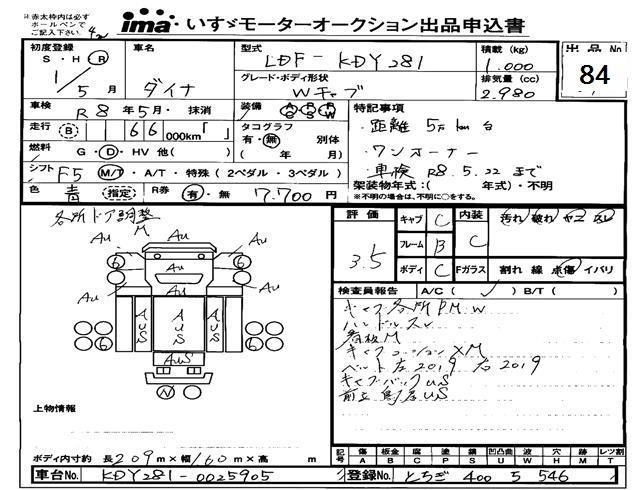 ※赤太枠内は必ず
ボールペンで
ご記入下さい。
ima いすゞモーターオークション出品申込書
初度登録
S・H・Ⓡ
1/5月
車名
ダイナ
型式
LDF-KDY281
積載 (kg)
1.000
出品No
84
グレード・ボディ形状
Wキャブ
排気量 (cc)
2.980
車検 R8年5月・抹消
装備
特記事項
走行 Ⓑ 66 000km「 」
タコグラフ
有・無 別体
( 年 月)
・距離 5万km台
・ワンオーナー
・車検 R8.5.22 まで
燃料 G・D・HV 他( )
シフト F5 M/T・A/T・特殊 (2ペダル・3ペダル)
架装物年式:( 年式)・不明
※不明の場合は、不明に○をする。
色 青 指定
R券 有・無 7.700円
各所ドア調整
M
Au Au Au
Au Au
6 6
Au Au
AuS AuS AuS
6 6
AuS
N
評価
3.5
キャブ C
フレーム B
ボディ C
内装
C
Fガラス
汚れ 破れ ヤニ スレ
割れ 線 点傷 イバリ
検査員報告 A/C( ✓ ) B/T( )
キャブ各所P.M.W
ハンドルスレ
看板M
キャブコーションXM
ベルト左2019 右2019
キャブバックuS
前立 鳥居uS
上物情報
ボディ内寸約 長 209 m×幅 160 m×高 m
記号 傷A 板金B 腐C 塗P 錆S 凹凸曲U 波W 穴H 跡M レツ割T
車台No KDY281-0025905
登録No. とちぎ 400 5 546